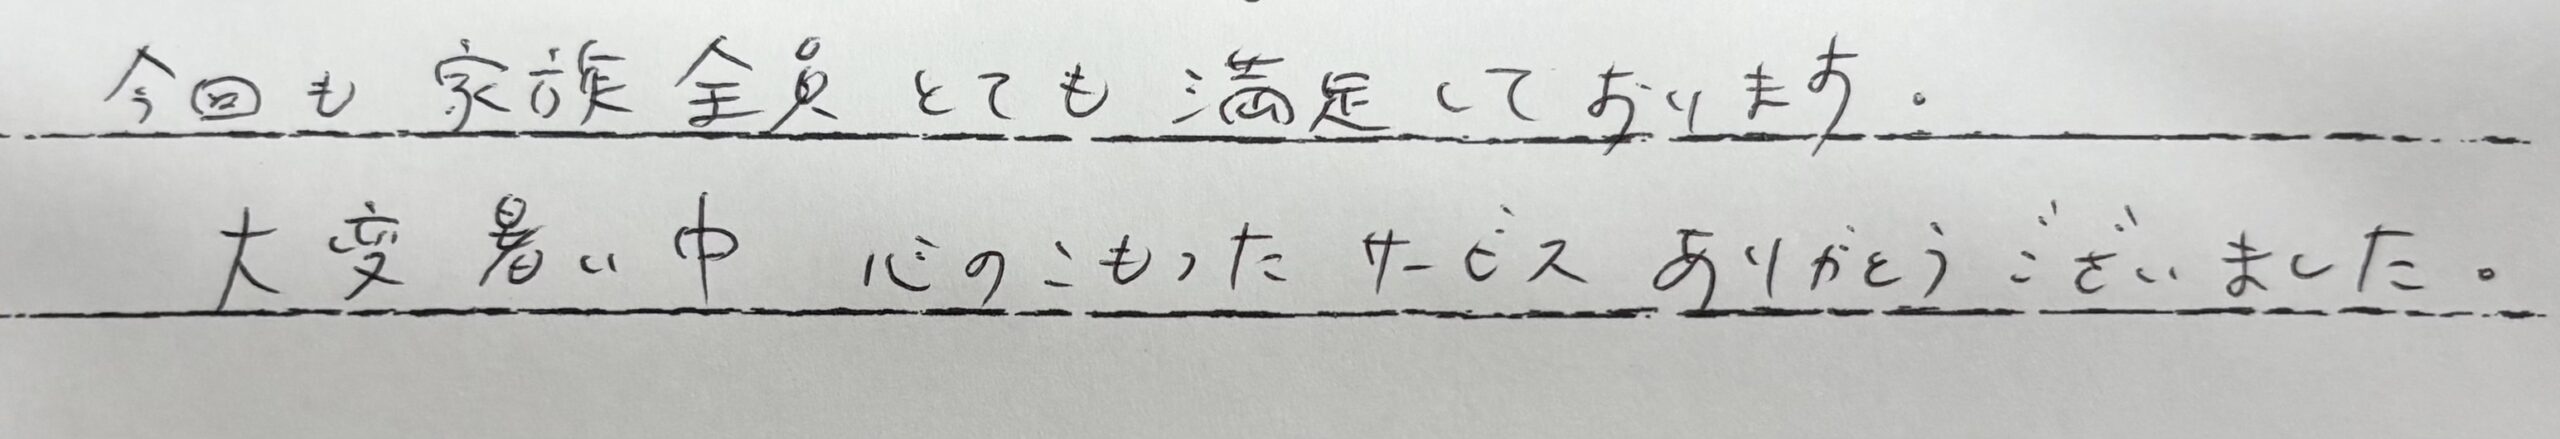 今回も 家族 全員 とても 満足しております。
大変暑い中 心のこもったサービスありがとうございました。